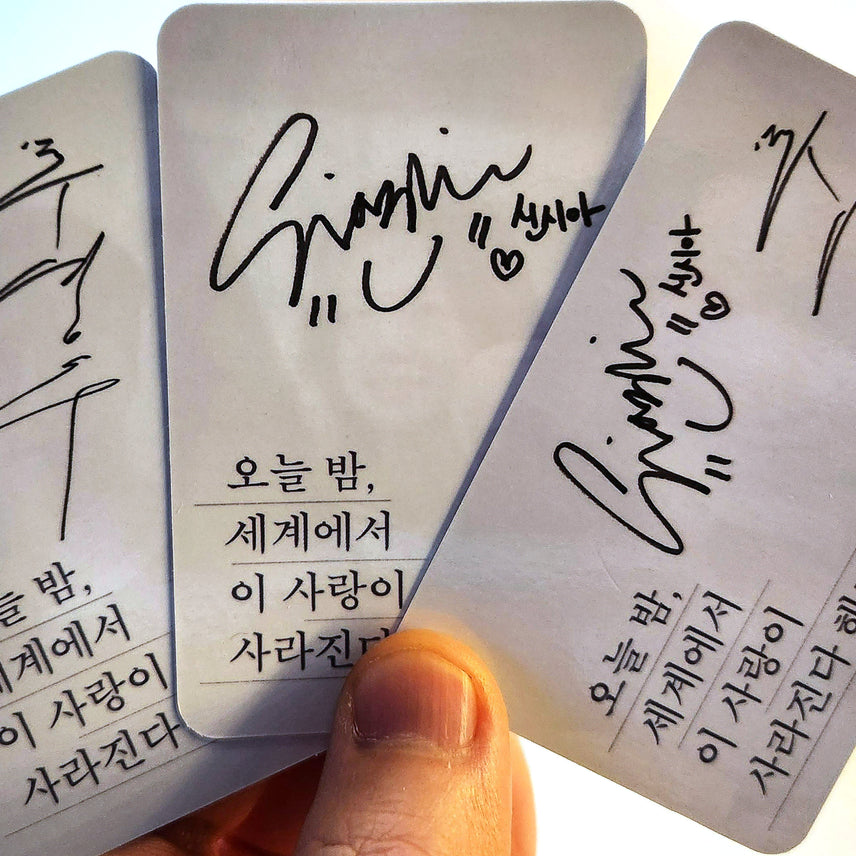 추
영
우
늘 밤,
세계에서
이 사랑이
사라진다
신시아
오늘 밤,
세계에서
이 사랑이
사라진다
신시아
오늘 밤,
세계에서
이 사랑이
사라진다 해